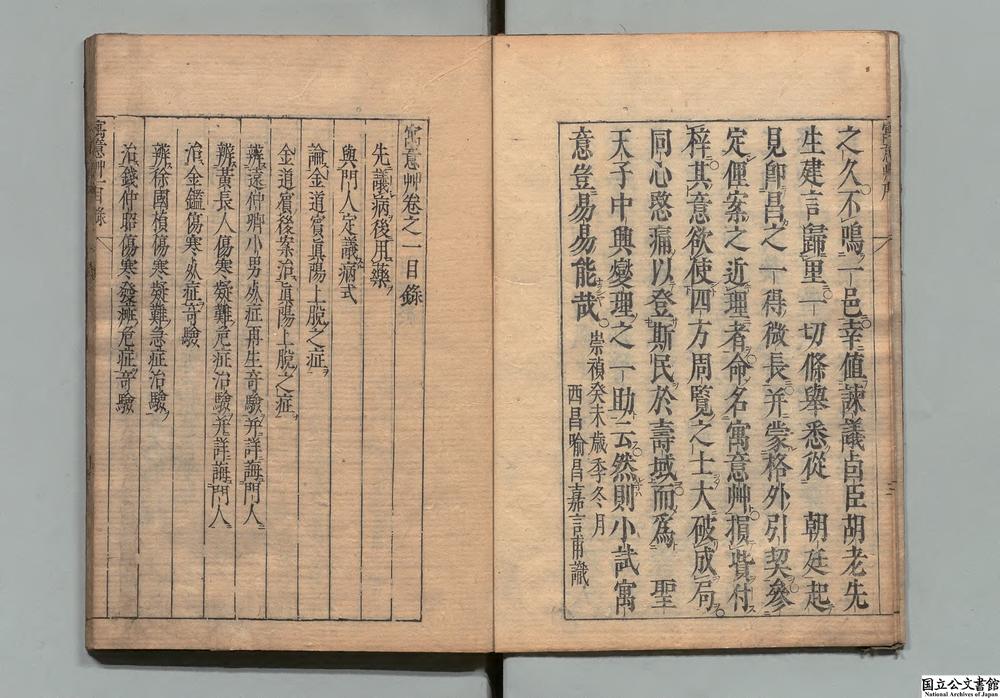 之久不鳴一邑幸值諫議卣臣胡老先
生建言歸里一切條舉悉從　朝廷起
見卽昌之一得微長并蒙格外引契參
定俚案之近理者命名寓意艸損貲付
梓其意欲使四方周覽之士大破成局
同心愍痛以登斯民於壽域而爲　聖
天子中興燮理之一助云然則小試寓
意豈易易能哉
崇禎癸未歲季冬月
西昌喻昌嘉言甫識
寓意艸卷之一目錄
先議病後用藥
與門人定議病式
論金道賓眞陽上脫之症
金道賓後案治眞陽上脫之症
辨袁仲卿小男危症再生奇驗并詳誨門人
辨黃長人傷寒疑難危症治驗并詳誨門人
治金鑑傷寒危症奇驗
辨徐國楨傷寒疑難急症治驗
治錢仲昭傷寒發癍危症奇驗
寓意艸目錄
国立公文書館
National Archives of Japan